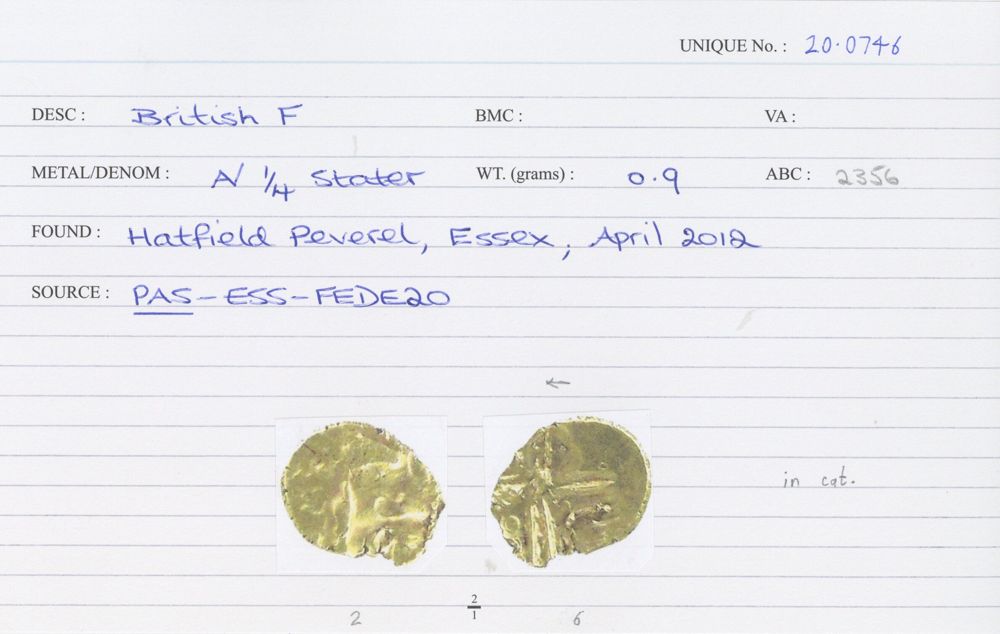 UNIQUE No. : 20·0746
DESC : British F BMC : VA :
METAL/DENOM : A/ 1/4 Stater WT. (grams) : 0.9 ABC : 2356
FOUND : Hatfield Peverel, Essex, April 2012
SOURCE : PAS-ESS-FEDE20
←
in cat.
2/1
2 6